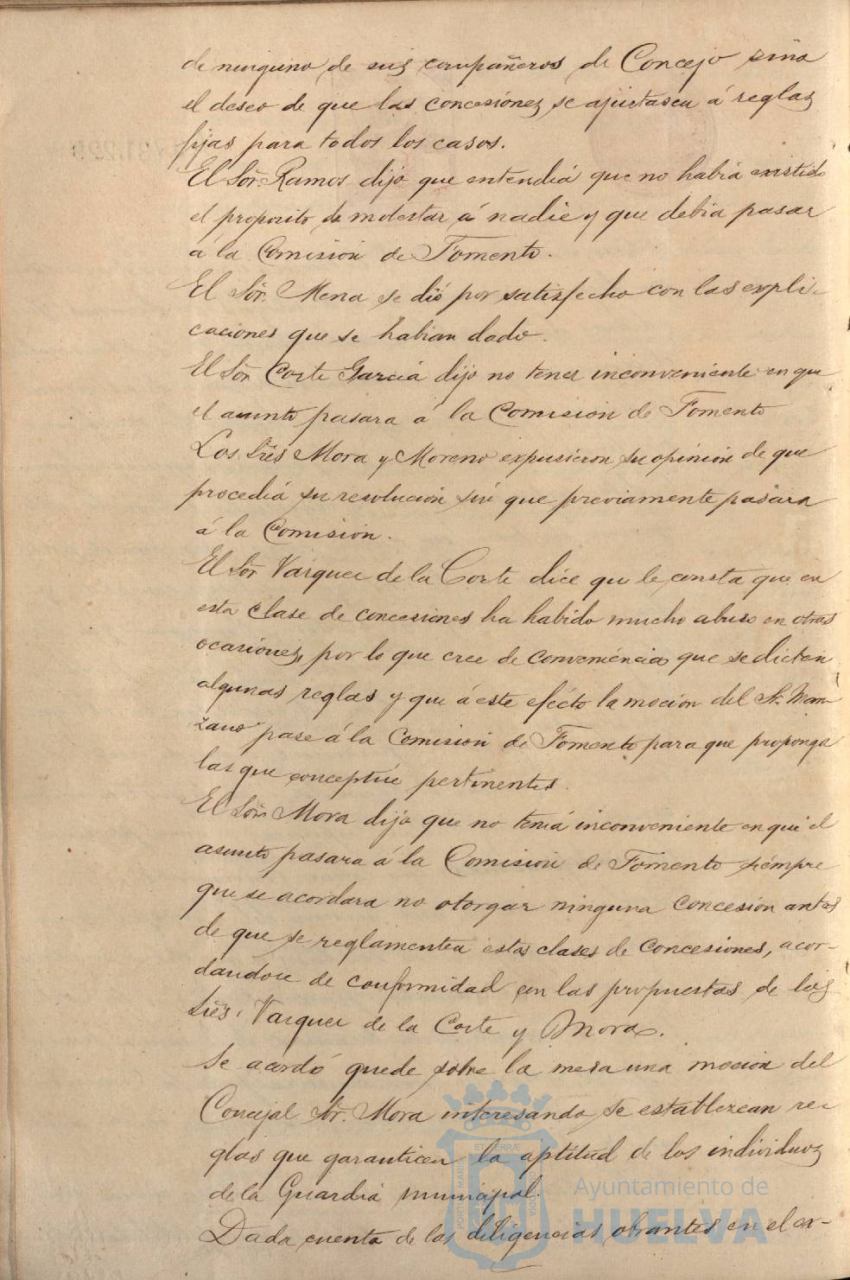 de ninguno de sus compañeros de Concejo sino
el deseo de que las concesiones se ajustasen á reglas
fijas para todos los casos.
El Sor. Ramos dijo que entendiá que no habia existido
el proposito de molestar á nadie y que debia pasar
a la Comision de Fomento.
El Sor. Mena se dió por satisfecho con las expli-
caciones que se habian dado.
El Sor. Corte Garcia dijo no tener inconveniente en que
el asunto pasara á la Comision de Fomento
Los Sres Mora y Moreno expusieron su opinion de que
procediá su resolucion sin que previamente pasara
á la Comision.
El Sor. Vazquez de la Corte dice que le consta que en
esta clase de concesiones ha habido mucho abuso en otras
ocasiones, por lo que cree de conveniencia que se dicten
algunas reglas y que á este efecto la mocion del Sr. Man-
zano pase á la Comision de Fomento para que proponga
las que conceptúe pertinentes.
El Sor. Mora dijo que no teniá inconveniente en que el
asunto pasara á la Comision de Fomento siempre
que se acordara no otorgar ninguna concesion antes
de que se reglamenten estas clases de concesiones, acor-
dandose de conformidad con las propuestas de los
Sres. Vazquez de la Corte y Mora.
Se acordó quede sobre la mesa una mocion del
Concejal Sr. Mora interesando se establezcan re-
glas que garanticen la aptitud de los individuos
de la Guardia municipal.
Dada cuenta de las diligencias obrantes en el ex-
Ayuntamiento de
HUELVA